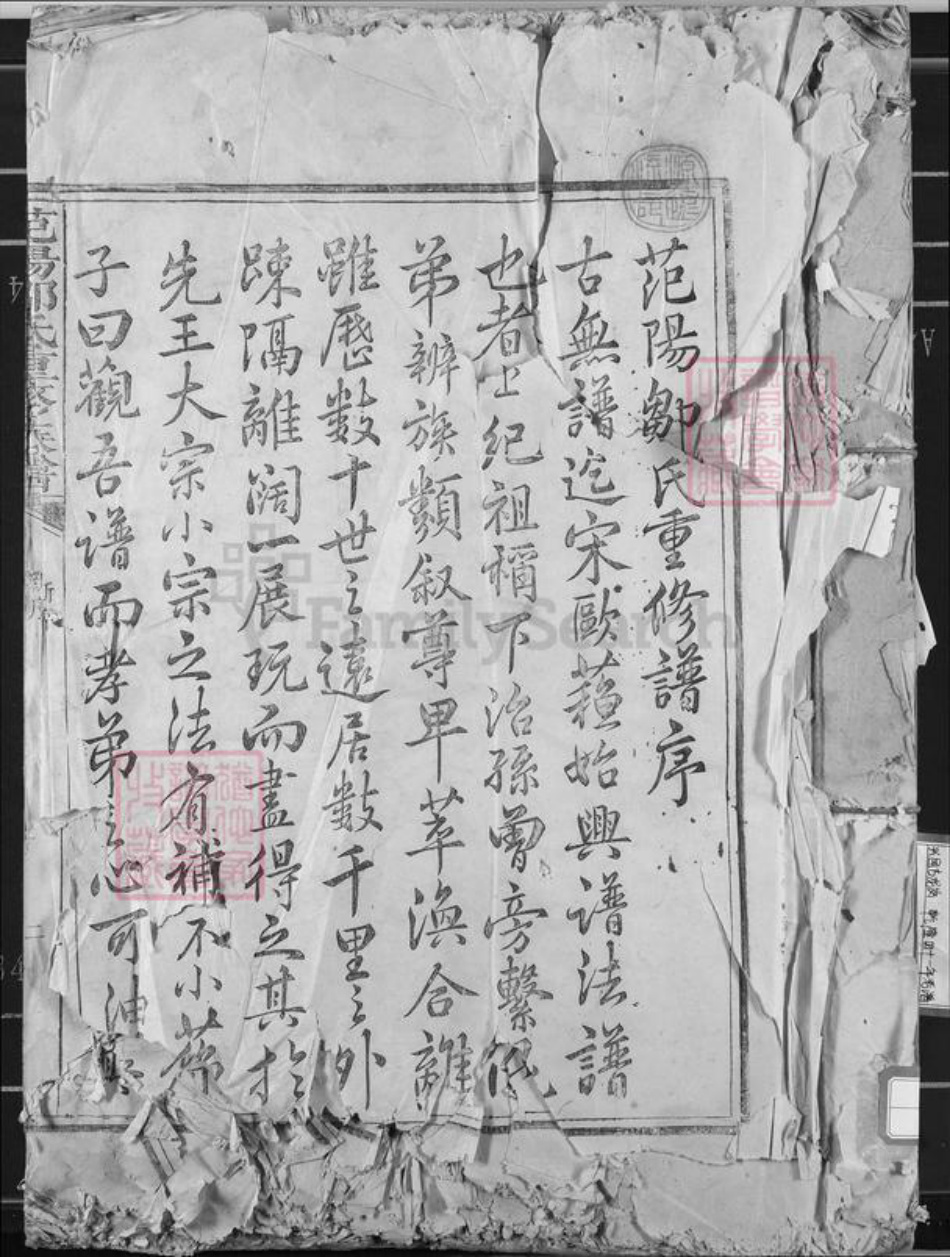 范陽鄒氏重修譜序
古無譜迄宋歐蘇始興譜法譜
也者上紀祖禰下治孫曾旁繫
弟辨族類叙尊卑萃渙合離
雖歷数十世之遠居數千里之外
踈隔離濶一展玩而盡得之其於
先王大宗小宗之法有補不小蘇
子曰觀吾譜而孝弟之心可油
范陽鄒氏重修族譜
新序
FamilySearch